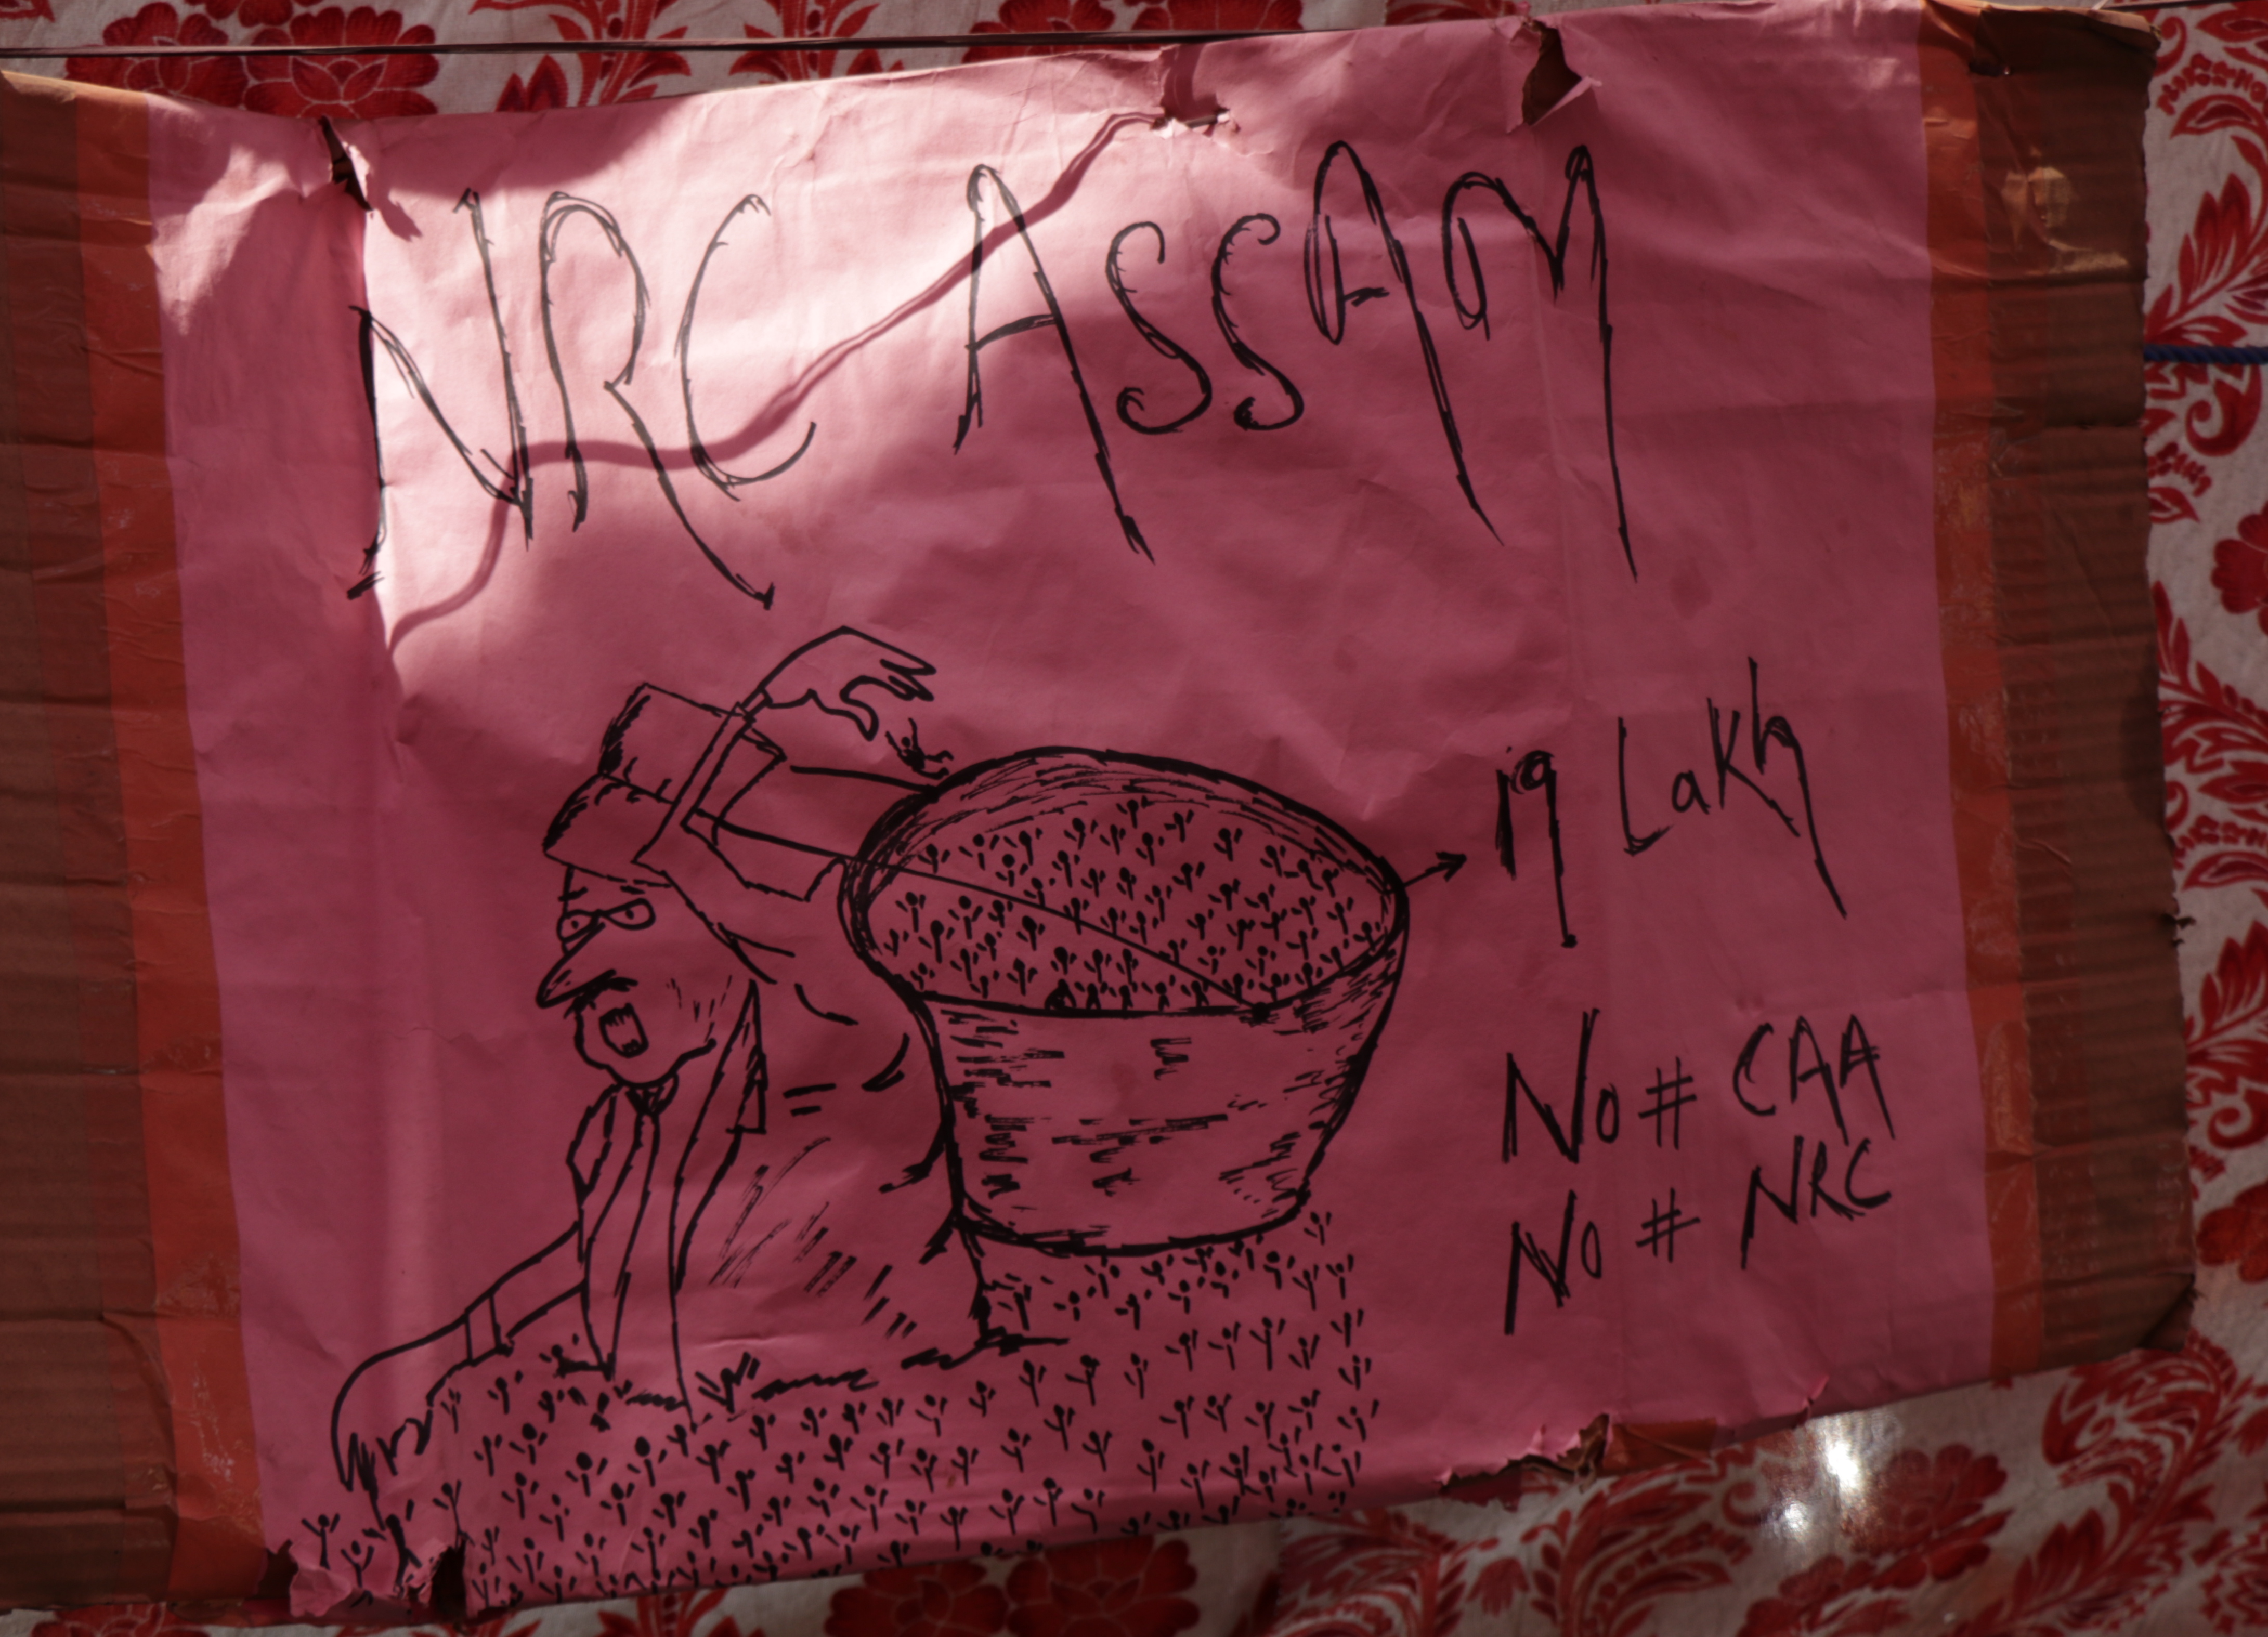 NRC ASSAM
19 Lakh
No # CAA
No # NRC